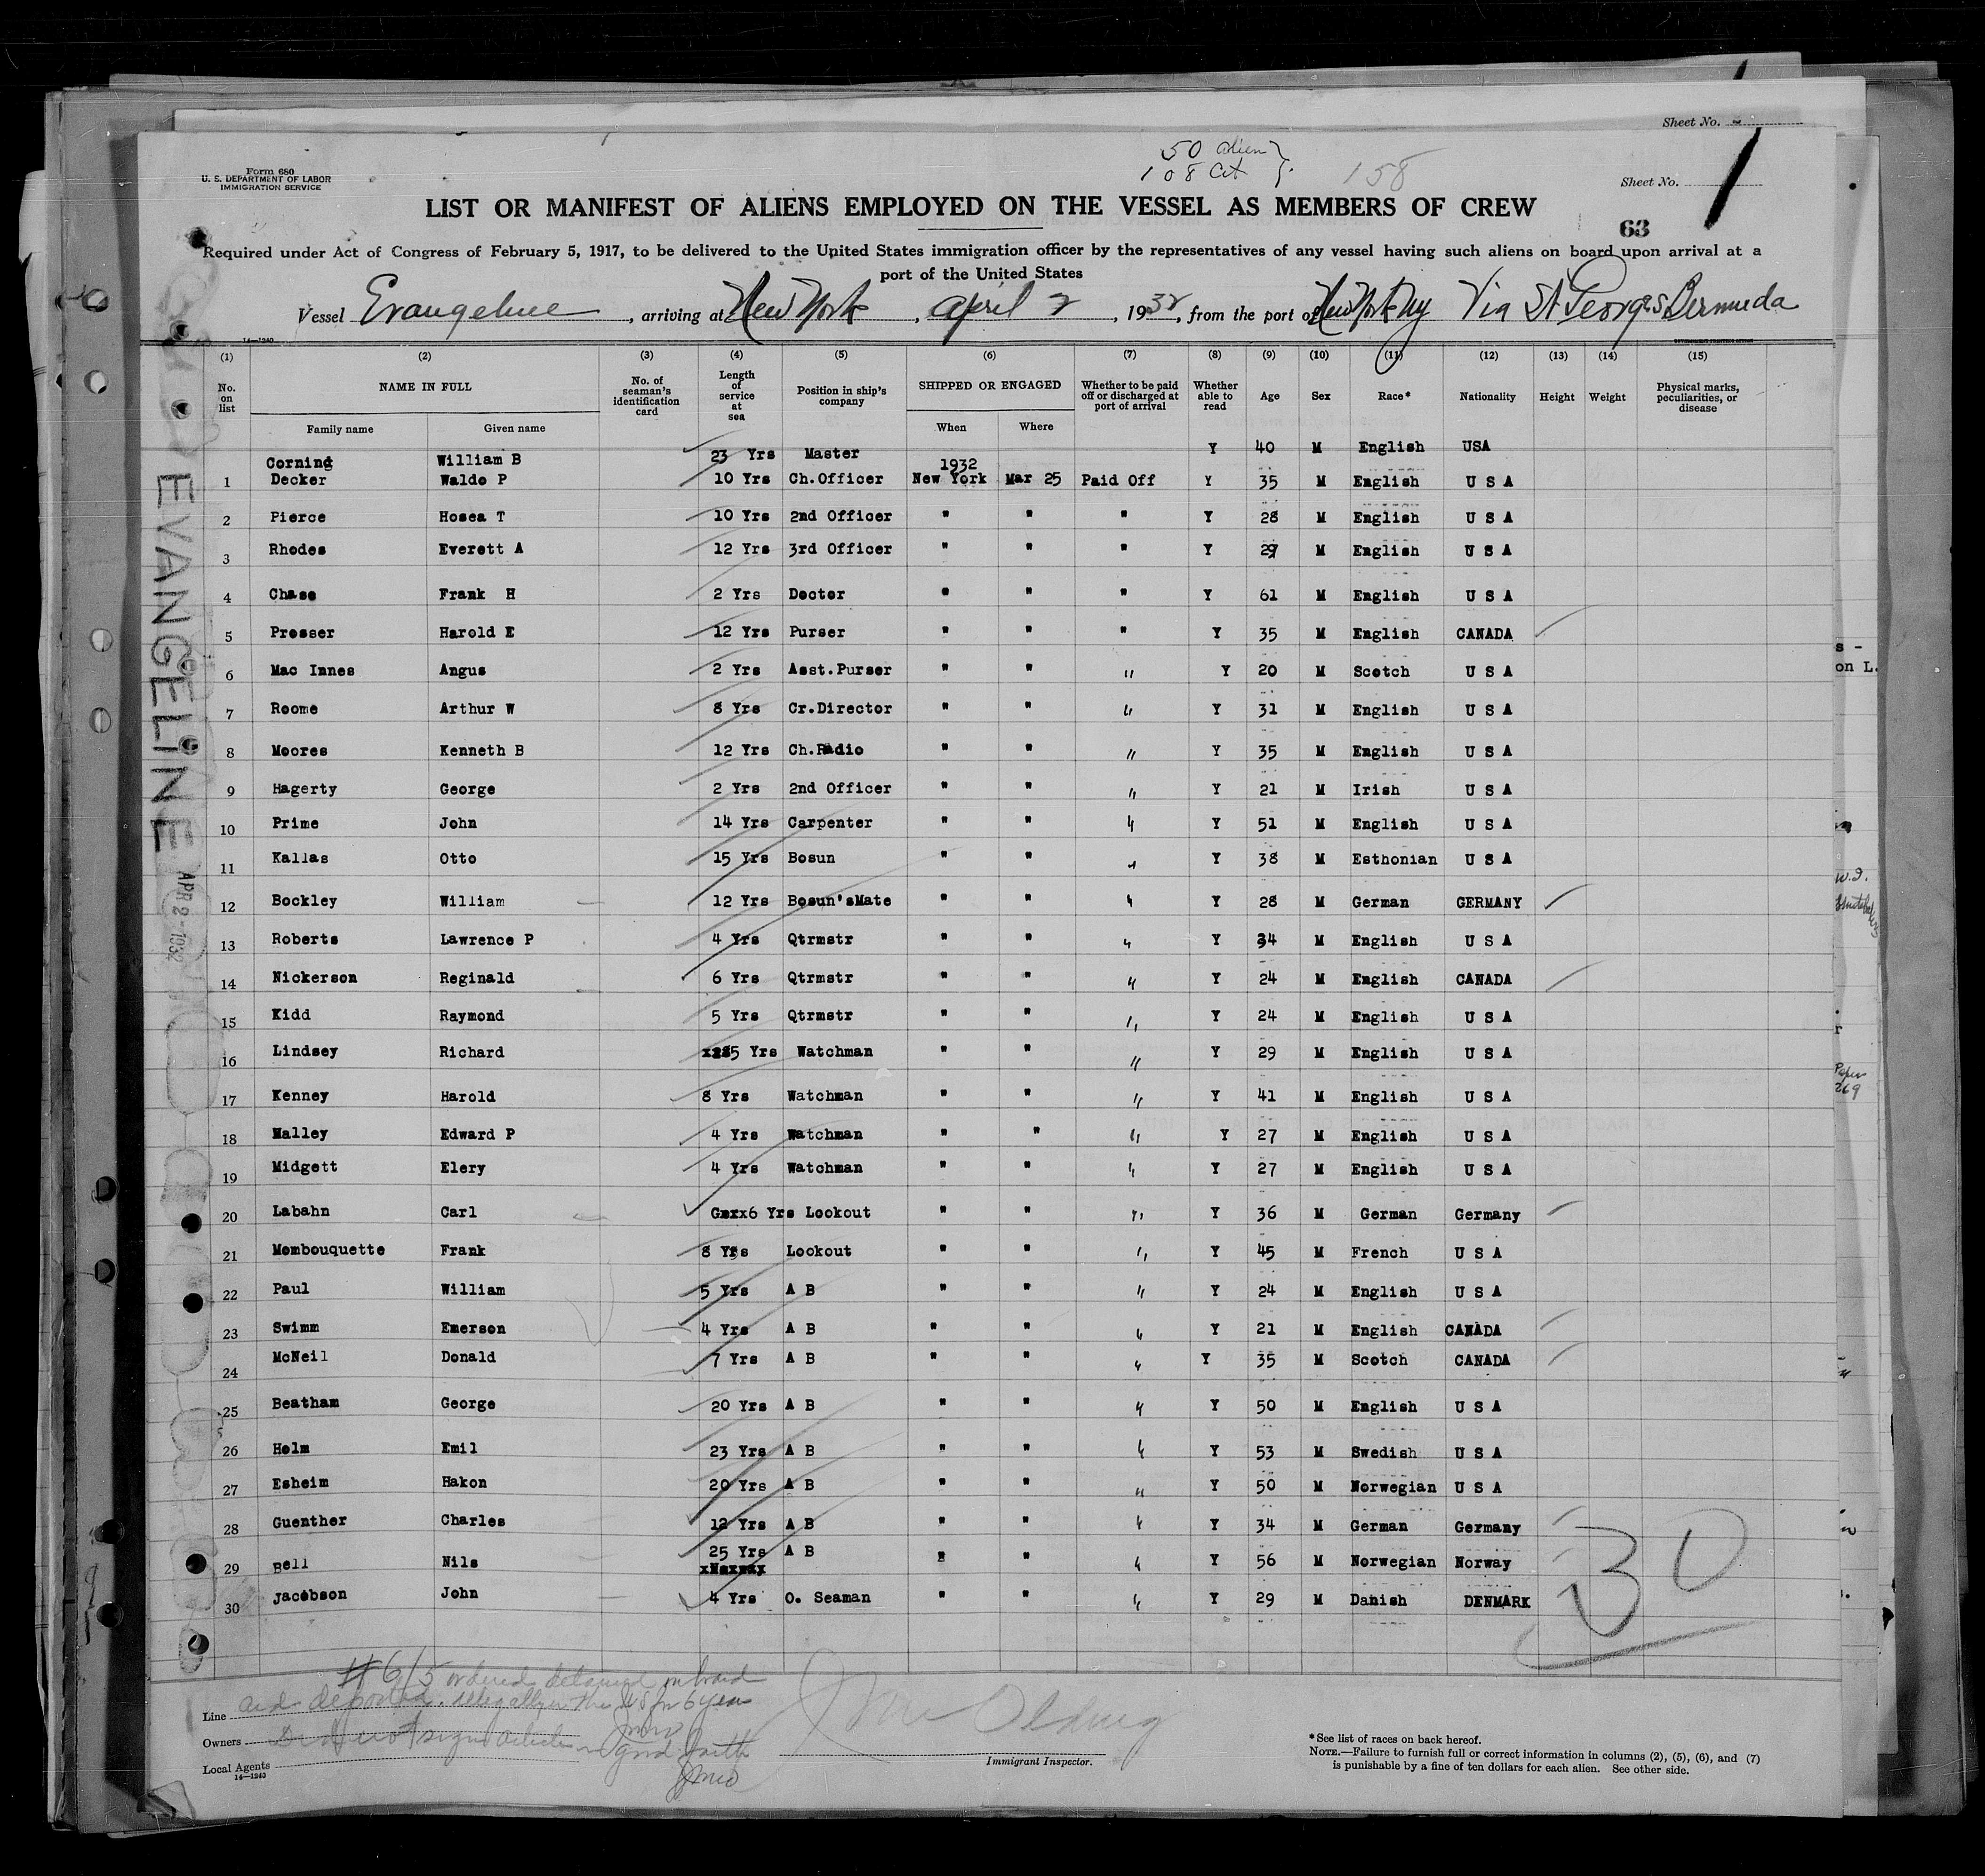 Sheet No.
50 alien
108 Cit
158
Form 680
U. S. DEPARTMENT OF LABOR
IMMIGRATION SERVICE
Sheet No. 1
LIST OR MANIFEST OF ALIENS EMPLOYED ON THE VESSEL AS MEMBERS OF CREW
63
Required under Act of Congress of February 5, 1917, to be delivered to the United States immigration officer by the representatives of any vessel having such aliens on board upon arrival at a
port of the United States
Vessel Evangeline, arriving at New York, April 2, 1932, from the port of New York Ny Via St Georges Bermuda
14—1240
(1) (2) (3) (4) (5) (6) (7) (8) (9) (10) (11) (12) (13) (14) (15)
No. on list NAME IN FULL No. of seaman's identification card Length of service at sea Position in ship's company SHIPPED OR ENGAGED Whether to be paid off or discharged at port of arrival Whether able to read Age Sex Race* Nationality Height Weight Physical marks, peculiarities, or disease
Family name Given name When Where
Corning William B 23 Yrs Master Y 40 M English USA
1932
1 Decker Waldo P 10 Yrs Ch.Officer New York Mar 25 Paid Off Y 35 M English U S A
2 Pierce Hosea T 10 Yrs 2nd Officer " " " Y 28 M English U S A
3 Rhodes Everett A 12 Yrs 3rd Officer " " " Y 29 M English U S A
4 Chase Frank H 2 Yrs Doctor " " " Y 61 M English U S A
5 Prosser Harold E 12 Yrs Purser " " " Y 35 M English CANADA
6 Mac Innes Angus 2 Yrs Asst.Purser " " " Y 20 M Scotch U S A
7 Roome Arthur W 8 Yrs Cr.Director " " " Y 31 M English U S A
8 Moores Kenneth B 12 Yrs Ch.Radio " " " Y 35 M English U S A
9 Hagerty George 2 Yrs 2nd Officer " " " Y 21 M Irish U S A
10 Prime John 14 Yrs Carpenter " " " Y 51 M English U S A
11 Kallas Otto 15 Yrs Bosun " " " Y 38 M Esthonian U S A
12 Bockley William 12 Yrs Bosun'sMate " " " Y 28 M German GERMANY
13 Roberts Lawrence P 4 Yrs Qtrmstr " " " Y 34 M English U S A
14 Nickerson Reginald 6 Yrs Qtrmstr " " " Y 24 M English CANADA
15 Kidd Raymond 5 Yrs Qtrmstr " " " Y 24 M English U S A
16 Lindsey Richard 5 Yrs Watchman " " " Y 29 M English U S A
17 Kenney Harold 8 Yrs Watchman " " " Y 41 M English U S A
18 Malley Edward P 4 Yrs Watchman " " " Y 27 M English U S A
19 Midgett Elery 4 Yrs Watchman " " " Y 27 M English U S A
20 Labahn Carl 6 Yrs Lookout " " " Y 36 M German Germany
21 Mombouquette Frank 8 Yrs Lookout " " " Y 45 M French U S A
22 Paul William 5 Yrs A B " " " Y 24 M English U S A
23 Swimm Emerson 4 Yrs A B " " " Y 21 M English CANADA
24 McNeil Donald 7 Yrs A B " " " Y 35 M Scotch CANADA
25 Beatham George 20 Yrs A B " " " Y 50 M English U S A
26 Holm Emil 23 Yrs A B " " " Y 53 M Swedish U S A
27 Esheim Hakon 20 Yrs A B " " " Y 50 M Norwegian U S A
28 Guenther Charles 12 Yrs A B " " " Y 34 M German Germany
29 Bell Nils 25 Yrs A B " " " Y 56 M Norwegian Norway
30 Jacobson John 4 Yrs O. Seaman " " " Y 29 M Danish DENMARK
30
EVANGELINE APR 2 - 1932
s -
on L.
W.I.
Paper
269
#6/5 ordered detained on board
and deported. illegally in the US for 6 years
Did not sign articles in good faith
Line
Owners
Local Agents
14—1243
Immigrant Inspector.
*See list of races on back hereof.
NOTE.—Failure to furnish full or correct information in columns (2), (5), (6), and (7)
is punishable by a fine of ten dollars for each alien. See other side.